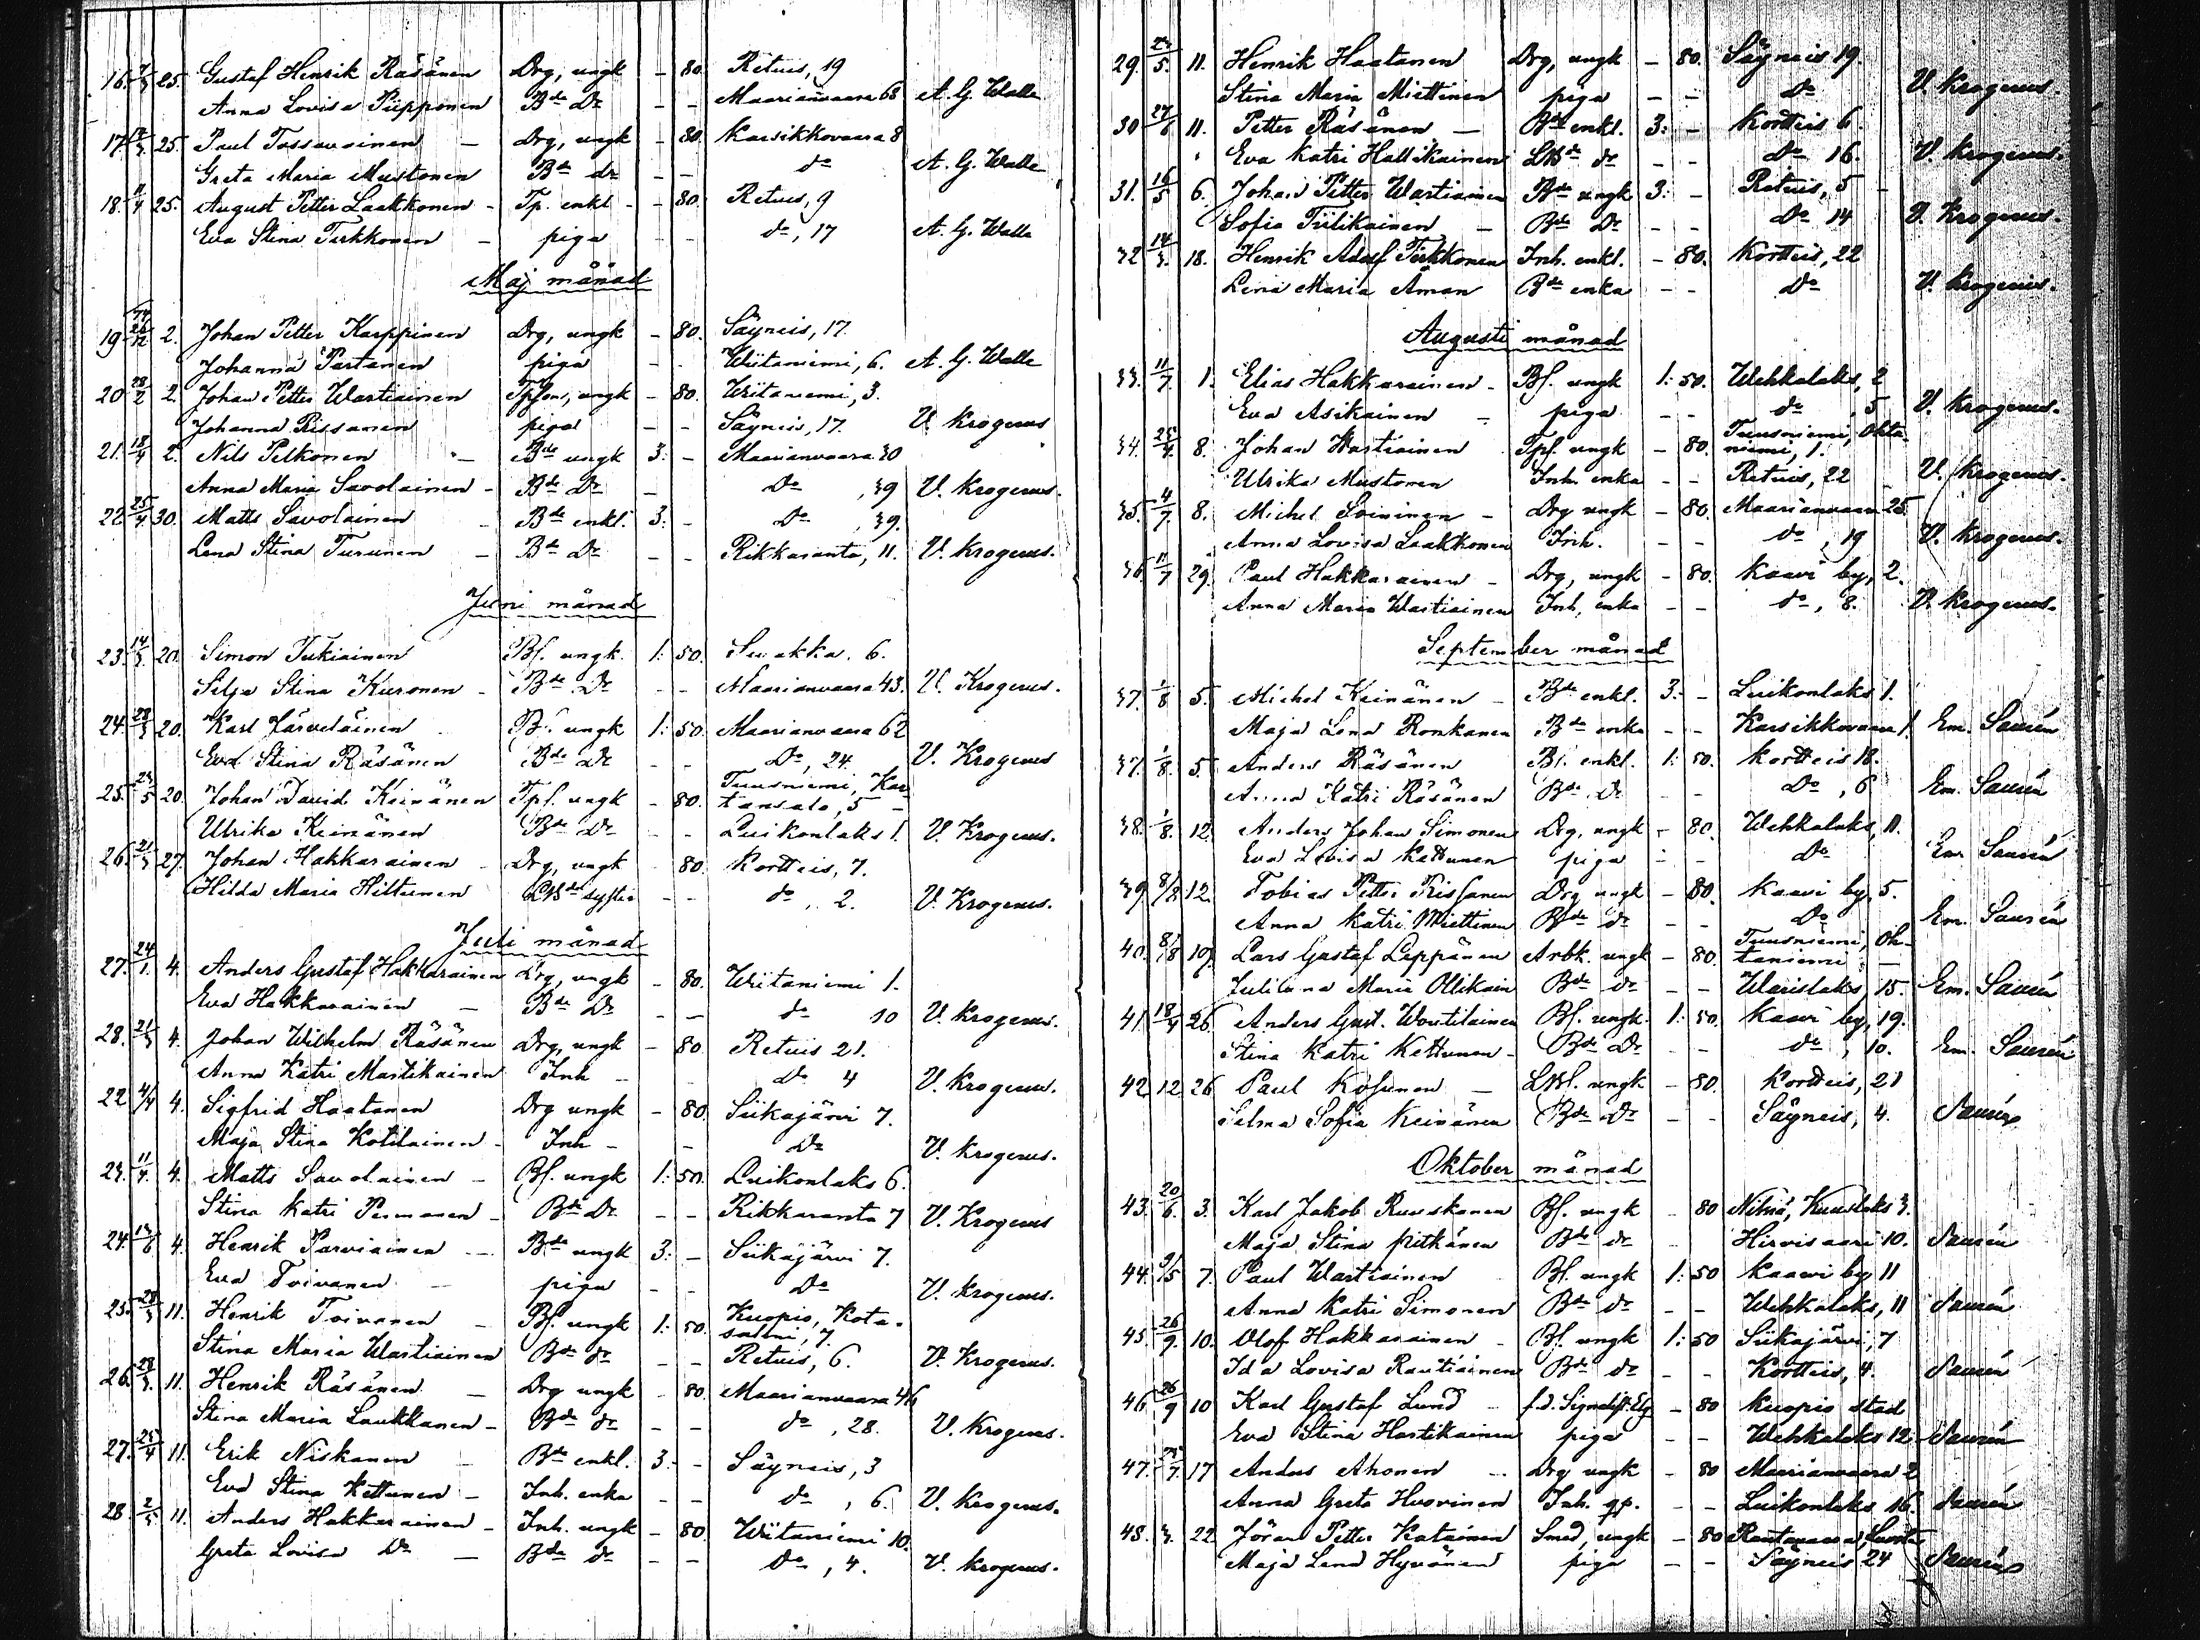 16. 25. Gustaf Henrik Räsänen Drg, ungk – 80. Retuis, 19
Anna Lovisa Piipponen Bde Do – – Maarianvaara 63 A. G. Walle
17. 25. Paul Tossavainen – Drg, ungk – 80. Karsikkovaara 8
Greta Maria Mustonen Bde do – – do A. G. Walle
18. 11/4 25. August Petter Laakkonen – Tp. enkl – – 80. Retuis, 9
Eva Stina Tirkkonen – piga – – do, 17 A. G. Walle
Maj månad
19 2. Johan Petter Karppinen Drg, ungk – 80. Säyneis, 17.
Johanna Partanen piga – – Wiitaniemi, 6. A. G. Walle
20 28/2 2. Johan Petter Wartiainen ungk – 80. Wiitaniemi, 3.
Johanna Rissanen piga – – Säyneis, 17. V. Krogerus
21. 18/4 2. Nils Pelkonen – Bde ungk 3: – Maarianvaara 30
Anna Maria Savolainen – Bde Do – Do, 39 V. Krogerus.
22 25/4 30. Matts Savolainen Bde enkl. 3: – Do, 39.
Lena Stina Turunen – Bde Do – – Rikkaranta, 11. V. Krogerus.
Juni månad
23. 20. Simon Tukiainen Bf. ungk. 1: 50. Suakka. 6.
Silja Stina Kuronen – Bde Do – – Maarianvaara 43. V. Krogerus.
24. 20. Karl Järveläinen Bf. ungk 1: 50. Maarianvaara 62
Eva Stina Räsänen Bde Do – – Do, 24. V. Krogerus
25. 20. Johan David Keinänen Tpf. ungk – 80. Tuusniemi, Kar
tansalo, 5 –
Ulrika Keinänen Bde Do – – Luikonlaks 1. V. Krogerus.
26. 27. Johan Hakkarainen – Drg, ungk 80. Kortteis, 7.
Hilda Maria Hiltunen – – do, 2. V. Krogerus.
Juli månad
27. 24/1. 4. Anders Gustaf Hakkarainen Drg, ungk – 80. Wiitaniemi 1.
Eva Hakkarainen – Bde Do – – do 10 V. Krogerus.
28. 4. Johan Wilhelm Räsänen Drg, ungk – 80. Retuis 21.
Anna Katri Martikainen Inh – Do 4 V. Krogerus.
22 4/4 4. Sigfrid Haatanen Drg ungk – 80. Siikajärvi 7.
Maja Stina Kotilainen – Inh – – Do V. Krogerus.
23. 11/4 4. Matts Savolainen – Bf. ungk 1: 50. Luikonlaks 6.
Stina Katri – Bde Do – – Rikkaranta 7 V. Krogerus
24. 4. Henrik Parviainen – Bde ungk 3: – Siikajärvi 7.
Eva Toivanen – piga – – Do V. Krogerus.
25. 11. Henrik Toivanen – Bf. ungk 1: 50. Kuopio, Kota-
salmi, 7.
Stina Maria Wartiainen Bde do – – Retuis, 6. V. Krogerus.
26. 11. Henrik Räsänen – Drg ungk – 80. Maarianvaara 46
Stina Maria Laukkanen – Bde do – – do, 28. V. Krogerus.
27. 11. Erik Niskanen – Bde enkl. 3: – Säyneis, 3
Eva Stina Kettunen – Inh. enka – – do, 6. V. Krogerus.
28. 11. Anders Hakkarainen – Inh. ungk – 80. Wiitaniemi 10.
Greta Lovisa Do – Bde do – – Do, 4. V. Krogerus.
29. 11. Henrik Haatanen Drg, ungk – 80. Säyneis 19
Stina Maria Miettinen piga – – Do V. Krogerus.
30 11. Petter Räsänen – Bde enkl. 3: – Kortteis 6.
Eva Katri Hallikainen LBde do – – Do 16. V. Krogerus.
31. 16/5 6. Johan Petter Wartiainen Bde ungk 3: – Retuis, 5 –
Sofia Tiilikainen – Bde Do – – Do 14 V. Krogerus.
32 18. Henrik Adolf Tirkkonen Inh. enkl. – 80. Kortteis, 22
Lena Maria Åman Bde enka – – Do V. Krogerus.
Augusti månad
33. 11/7 1. Elias Hakkarainen – Bf. ungk 1: 50. Wehkalaks, 2
Eva Asikainen – piga – – do, 5 V. Krogerus.
34. 8. Johan Wartiainen Tpf. ungk – 80. Tuusniemi, Okta
niemi, 1.
Ulrika Mustonen Inh. enka – – Retuis, 22 V. Krogerus.
35. 4/7 8. Michel Soininen – Drg ungk – 80. Maarianvaara 25
Anna Lovisa Laakkonen Inh. – – do, 19 V. Krogerus.
36 11/7 29. Paul Hakkarainen – Drg, ungk – 80. Kaavi by, 2.
Anna Maria Wartiainen Inh, enka – – do, 8. V. Krogerus.
September månad
37. 1/8 5. Michel Keinänen – Bde enkl. 3: – Luikonlaks 1.
Maja Lena Ronkanen Bde enka – – Karsikkovaara 1. Em. Saurén
37. 1/8. 5. Anders Räsänen Bf. enkl. 1: 50. Kortteis 18.
Anna Katri Räsänen Bde Do – – Do, 6 Em. Saurén
38. 1/8. 12. Anders Johan Simonen Drg, ungk – 80. Wehkalaks, 11.
Eva Lovisa Kettunen piga – – Do Em. Saurén
39 8/8 12. Tobias Petter Rissanen Drg ungk – 80. Kaavi by, 5.
Anna Katri Miettinen Bde do – – Do Em. Saurén
40. 8/8 19. Lars Gustaf Leppänen Arbk. ungk – 80. Tuusniemi, Oh-
taniemi –
Juliana Maria Ollikain Bde do – – Warislaks, 15. Em. Saurén
41 18/4 26. Anders Gust. Woutilainen Bf. ungk. 1: 50. Kaavi by, 19.
Stina Katri Kettunen – Bde Do – – do, 10. Em. Saurén
42 12 26 Paul Kosunen – LBf. ungk – 80. Kortteis, 21
Selma Sofia Keinänen Bde Do – – Säyneis, 4. Saurén
Oktober månad
43. 20/6. 3. Karl Jakob Ruuskanen Bf. ungk – 80 Nilsiä, Kuuslaks 3.
Maja Stina Pitkänen Bde do – Hirvisaari 10. Saurén
44. 9/5 7. Paul Wartiainen Bf. ungk 1: 50 Kaavi by 11
Anna Katri Simonen Bde do – – Wehkalaks, 11 Saurén
45. 26/9. 10. Olof Hakkarainen – Bf. ungk 1: 50 Siikajärvi, 7
Ida Lovisa Rautiainen Bde do – – Kortteis, 4. Saurén
46 26/9 10 Karl Gustaf Lund – f.d. – 80 Kuopio stad
Eva Stina Hartikainen piga – – Wehkalaks 12. Saurén
47. 17 Anders Ahonen – Drg ungk – 80 Maarianvaara 2
Anna Greta Huovinen Inh. – – Luikonlaks 16. Saurén
48. 22 Jöran Petter Katainen Smed, ungk – 80 Rautavaara,
Maja Lena Hyvönen piga – – Säyneis 24 Saurén